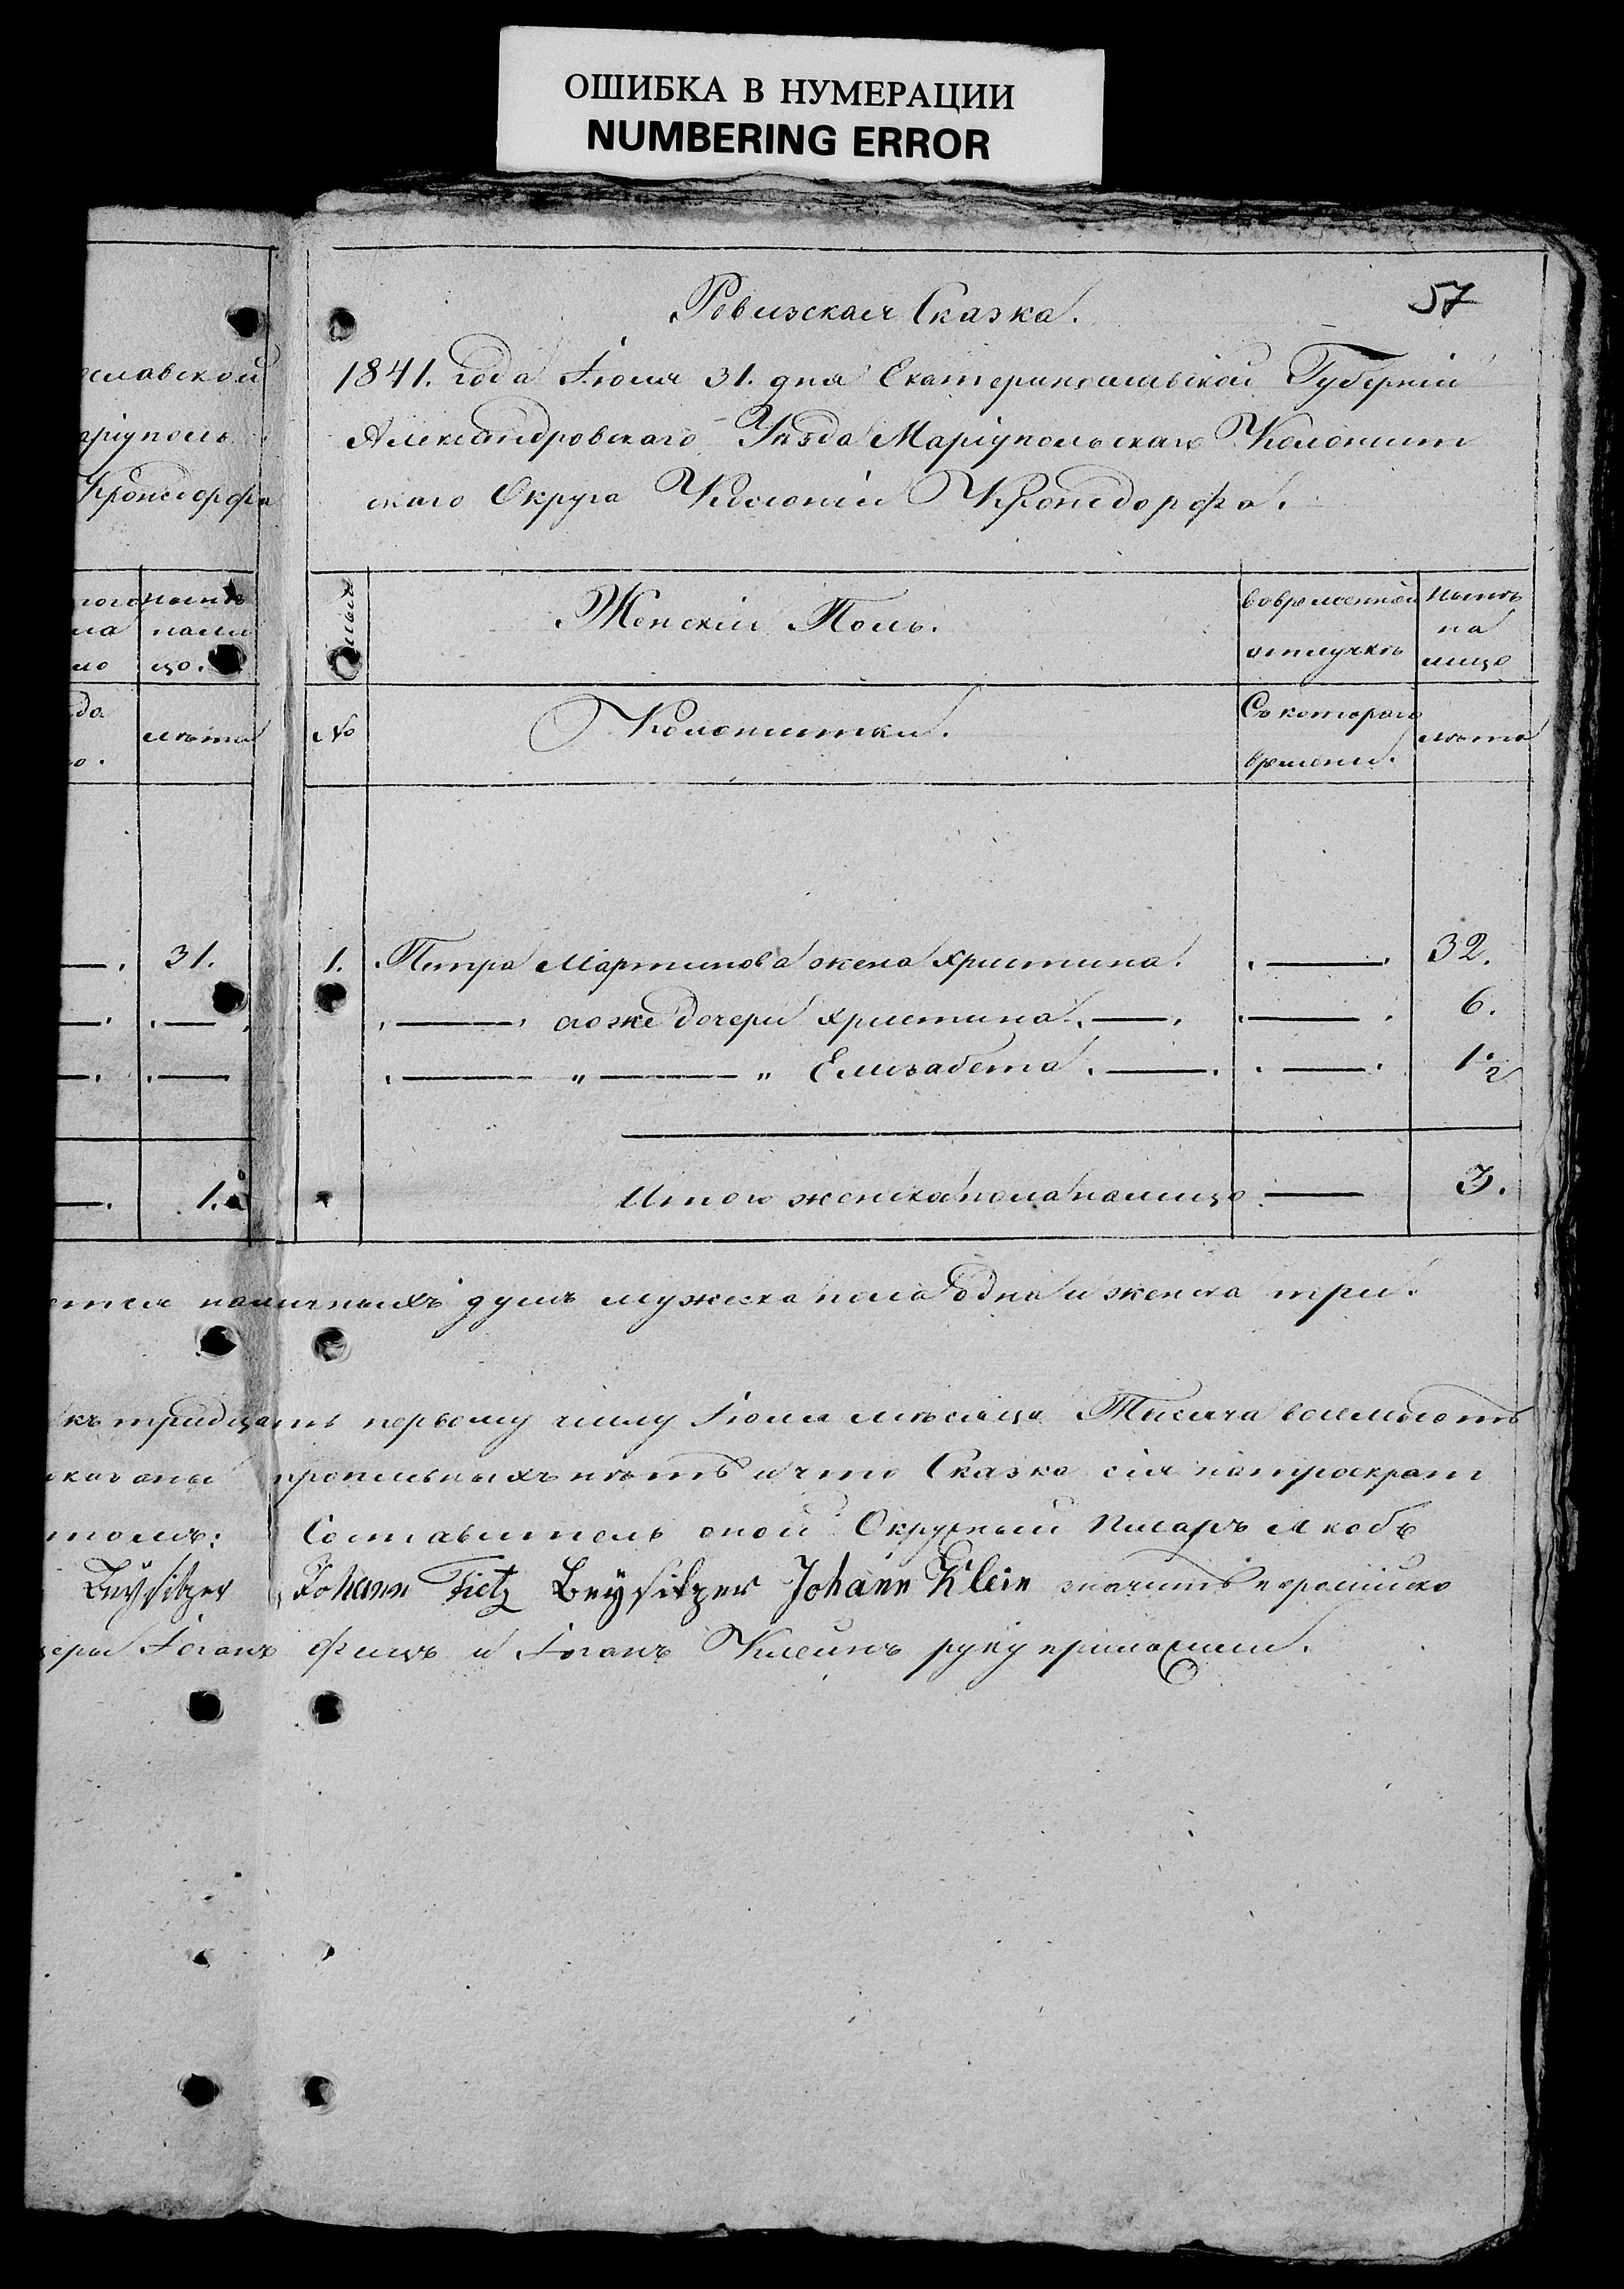 ОШИБКА В НУМЕРАЦИИ
NUMBERING ERROR
57
Ревизская Сказка.
1841. года Іюля 31. дня Екатеринославской Губерніи
Александровскаго Уѣзда Маріупольскаго Колонист
скаго Округа Колоніи Кронсдорфа.
славской
аріуполь
Кронсдорфа
Женскій Полъ.
вовременной
отлучкѣ
Нынѣ
на
лицо
нынѣ
нали
цо.
№
Колонистки.
Съ котораго
времени.
лѣта
лѣта
31.
1. Петра Мартинова жена Христина. 32.
его же дочери Христина. 6.
" " Елизабета. 1/2
1. Итого женска пола налицо 3.
наличныхъ душъ мужеска пола одна и женска три.
къ тридцать первому числу Іюля мѣсяца Тысяча восемьсотъ
прописныхъ нѣтъ и что Сказка сія потроекрат
Составитель оной Окружный Писарь Якобъ
Beÿsitzer Johann Fietz Beÿsitzer Johann Klein значитъ пороссійско
Іоганъ Фицъ и Іоганъ Клейнъ руку приложили.